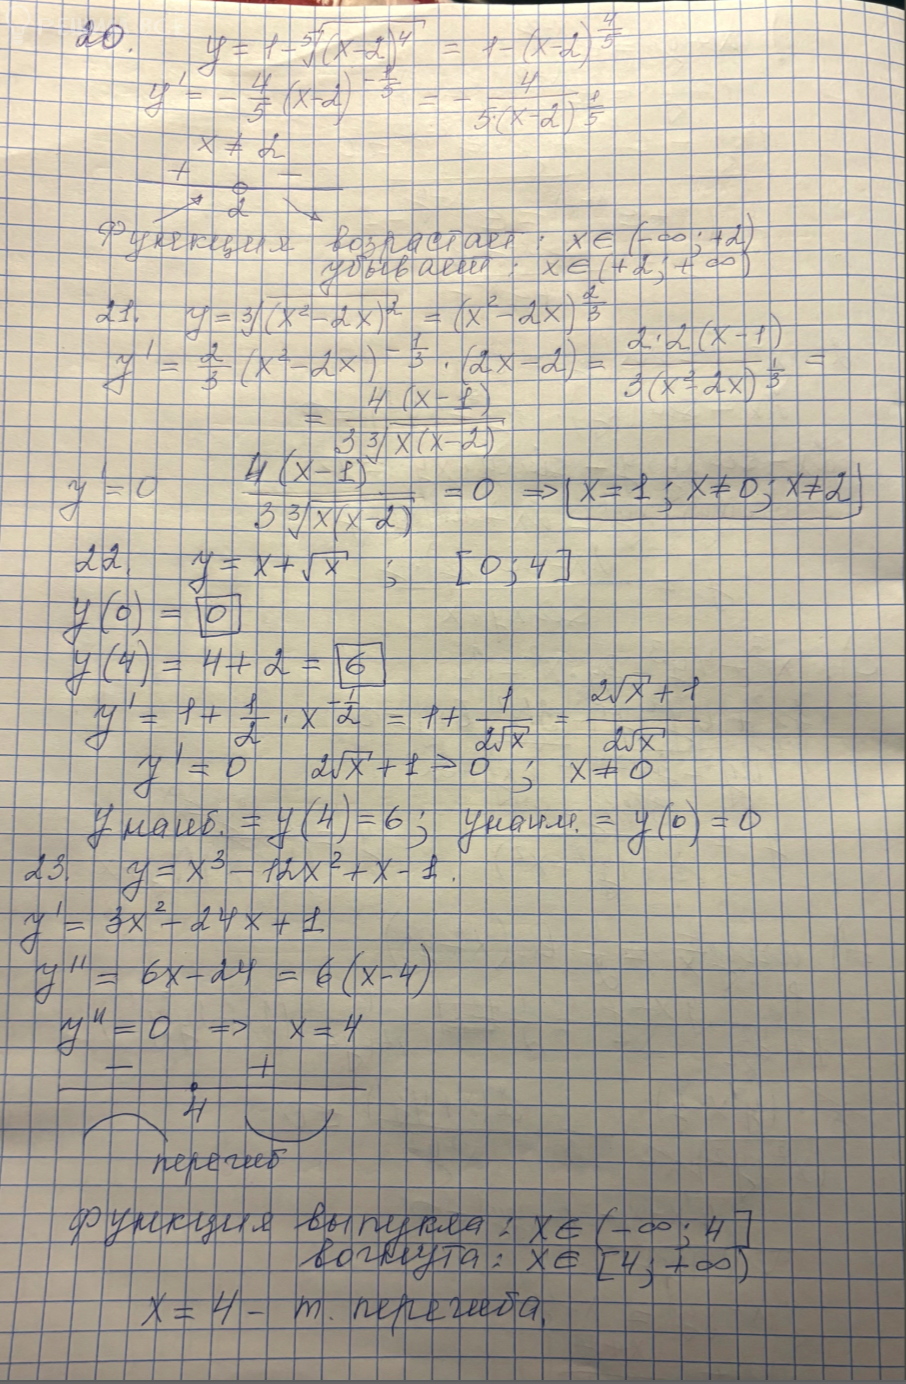 20. y = 1 - ⁵√(x-2)⁴ = 1 - (x-2)^(4/5)
y' = - 4/5 (x-2)^(-1/5) = - 4/(5·(x-2)^(1/5))
x ≠ 2
+ -
2
Функция возрастает: x ∈ (-∞; +2)
убывает: x ∈ (+2; +∞)
21. y = ³√(x²-2x)² = (x²-2x)^(2/3)
y' = 2/3 (x²-2x)^(-1/3) · (2x-2) = 2·2(x-1)/(3(x²-2x)^(1/3)) =
= 4(x-1)/(3 ³√(x(x-2)))
y' = 0 4(x-1)/(3 ³√(x(x-2))) = 0 => x = 1; x ≠ 0; x ≠ 2
22. y = x + √x ; [0; 4]
y(0) = 0
y(4) = 4 + 2 = 6
y' = 1 + 1/2 · x^(-1/2) = 1 + 1/(2√x) = (2√x + 1)/(2√x)
y' = 0 2√x + 1 = 0 ; x ≠ 0
y наиб. = y(4) = 6; y наим. = y(0) = 0
23. y = x³ - 12x² + x - 1.
y' = 3x² - 24x + 1
y'' = 6x - 24 = 6(x-4)
y'' = 0 => x = 4
- +
4
перегиб
функция выпукла: x ∈ (-∞; 4]
вогнута: x ∈ [4; +∞)
x = 4 - т. перегиба.